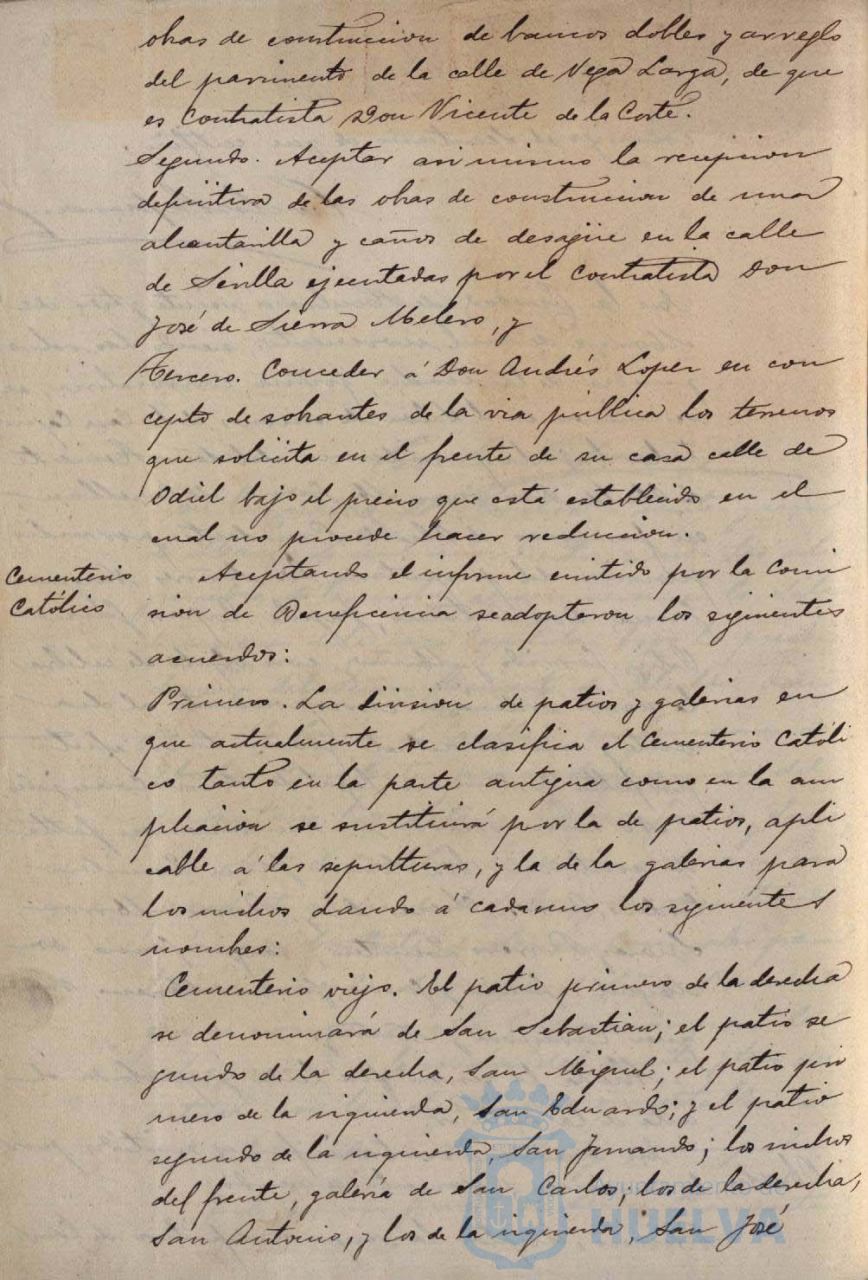 obras de construccion de bancos dobles y arreglo
del pavimento de la calle de Vega Larga, de que
es Contratista Don Vicente de la Corte.
Segundo. Aceptar asi mismo la recepcion
definitiva de las obras de construccion de una
alcantarilla y caños de desagüe en la calle
de Sevilla ejecutadas por el Contratista Don
José de Sierra Melero, y
Tercero. Conceder á Don Andrés Lopez en con
cepto de sobrantes de la via pública los terrenos
que solicita en el frente de su casa calle de
Odiel bajo el precio que está establecido en el
cual no procede hacer reduccion.
Cementerio
Católico
Aceptando el informe emitido por la Comi
sion de Beneficencia se adoptaron los siguientes
acuerdos:
Primero. La division de patios y galerias en
que actualmente se clasifica el Cementerio Católi
co tanto en la parte antigua como en la am
pliacion se sustituirá por la de patios, apli
cable á las sepulturas, y la de la galerias para
los nichos dando á cada uno los siguientes
nombres:
Cementerio viejo. El patio primero de la derecha
se denominará de San Sebastian; el patio se
gundo de la derecha, San Miguel; el patio pri
mero de la izquierda, San Eduardo; y el patio
segundo de la izquierda, San Fernando; los nichos
del frente, galería de San Carlos; los de la derecha,
San Antonio, y los de la izquierda, San José
HUELVA